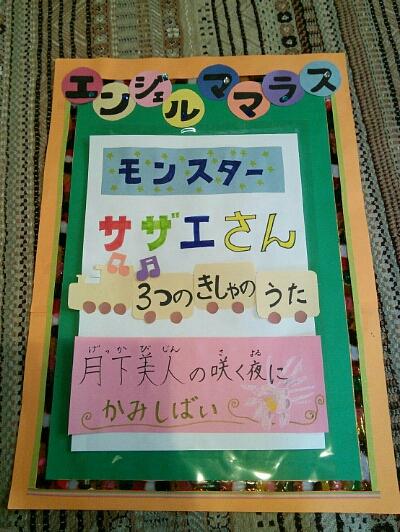 エンジェルママラス
モンスター
サザエさん
3つのきしゃのうた
げっかびじん さ よる
月下美人の咲く夜に
かみしばい